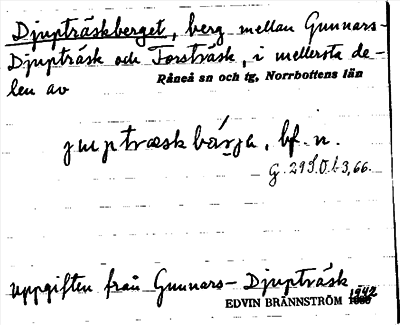 Djupträskberget, berg mellan Gunnars-
Djupträsk och Torsträsk, i mellersta de-
len av Råneå sn och tg, Norrbottens län
jupträskbärja, bf. n.
uppgiften från Gunnars-Djupträsk
EDVIN BRÄNNSTRÖM 1942